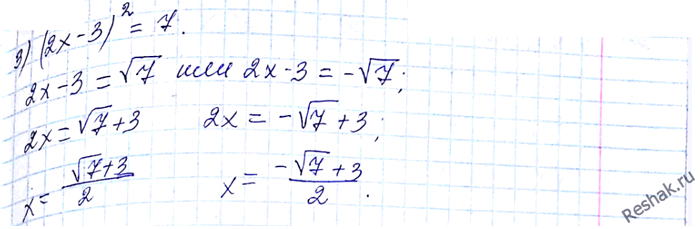 3) (2x-3)² = 7.
2x-3 = √7 или 2x-3 = -√7;
2x = √7+3 2x = -√7+3;
x = (√7+3)/2 x = (-√7+3)/2.
Reshak.ru